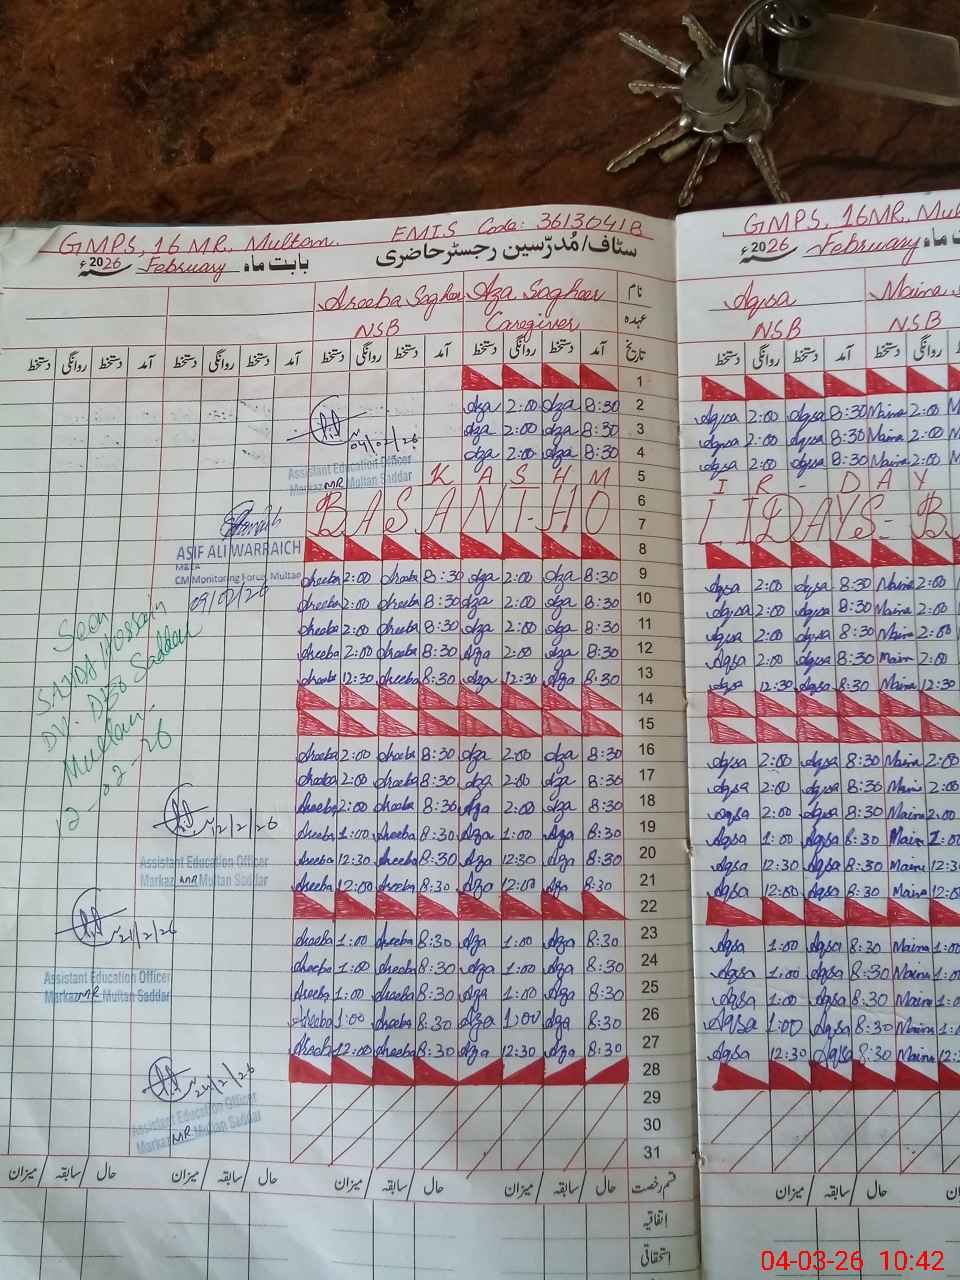 GMPS, 16 MR. Multan. EMIS Code: 36130418
سٹاف/مُدرّسین رجسٹر حاضری
بابت ماہ February 2026ء
Areeba Sagheer Aza Sagheer نام
NSB Caregiver عہدہ
دستخط روانگی دستخط آمد دستخط روانگی دستخط آمد دستخط روانگی دستخط آمد دستخط روانگی دستخط آمد تاریخ
1
Aza 2:00 Aza 8:30 2
Aza 2:00 Aza 8:30 3
Aza 2:00 Aza 8:30 4
KASHM 5
BASANT-HO 6
7
8
Areeba 2:00 Areeba 8:30 Aza 2:00 Aza 8:30 9
Areeba 2:00 Areeba 8:30 Aza 2:00 Aza 8:30 10
Areeba 2:00 Areeba 8:30 Aza 2:00 Aza 8:30 11
Areeba 2:00 Areeba 8:30 Aza 2:00 Aza 8:30 12
Areeba 12:30 Areeba 8:30 Aza 12:30 Aza 8:30 13
14
15
Areeba 2:00 Areeba 8:30 Aza 2:00 Aza 8:30 16
Areeba 2:00 Areeba 8:30 Aza 2:00 Aza 8:30 17
Areeba 2:00 Areeba 8:30 Aza 2:00 Aza 8:30 18
Areeba 1:00 Areeba 8:30 Aza 1:00 Aza 8:30 19
Areeba 12:30 Areeba 8:30 Aza 12:30 Aza 8:30 20
Areeba 12:00 Areeba 8:30 Aza 12:00 Aza 8:30 21
22
Areeba 1:00 Areeba 8:30 Aza 1:00 Aza 8:30 23
Areeba 1:00 Areeba 8:30 Aza 1:00 Aza 8:30 24
Areeba 1:00 Areeba 8:30 Aza 1:00 Aza 8:30 25
Areeba 1:00 Areeba 8:30 Aza 1:00 Aza 8:30 26
Areeba 12:00 Areeba 8:30 Aza 12:30 Aza 8:30 27
28
29
30
31
میزان / سابقہ / حال میزان / سابقہ / حال میزان / سابقہ / حال میزان / سابقہ / حال قسم رخصت
اتفاقیہ
استحقاقی
04/02/26
Assistant Education Officer
Markaz MR Multan Saddar
ASIF ALI WARRAICH
M&EA
CM Monitoring Force, Multan
09/02/26
Seen
Dy. DEO Saddar
Multan.
12-02-26
12/2/26
Assistant Education Officer
Markaz MR Multan Saddar
21/2/26
Assistant Education Officer
Markaz MR Multan Saddar
Assistant Education Officer
Markaz MR Multan Saddar
GMPS, 16 MR. Mul
2026ء February بابت ماہ
Aqsa Maina
NSB NSB
دستخط روانگی دستخط آمد دستخط روانگی
Aqsa 2:00 Aqsa 8:30 Maina 2:00
Aqsa 2:00 Aqsa 8:30 Maina 2:00
Aqsa 2:00 Aqsa 8:30 Maina 2:00
IR-DAY
LIDAYS-B
Aqsa 2:00 Aqsa 8:30 Maina 2:00
Aqsa 2:00 Aqsa 8:30 Maina 2:00
Aqsa 2:00 Aqsa 8:30 Maina 2:00
Aqsa 2:00 Aqsa 8:30 Maina 2:00
Aqsa 12:30 Aqsa 8:30 Maina 12:30
Aqsa 2:00 Aqsa 8:30 Maina 2:00
Aqsa 2:00 Aqsa 8:30 Maina 2:00
Aqsa 2:00 Aqsa 8:30 Maina 2:00
Aqsa 1:00 Aqsa 8:30 Maina 1:00
Aqsa 12:30 Aqsa 8:30 Maina 12:30
Aqsa 12:00 Aqsa 8:30 Maina 12:00
Aqsa 1:00 Aqsa 8:30 Maina 1:00
Aqsa 1:00 Aqsa 8:30 Maina 1:00
Aqsa 1:00 Aqsa 8:30 Maina 1:00
Aqsa 1:00 Aqsa 8:30 Maina 1:0
Aqsa 12:30 Aqsa 8:30 Maina 12:
میزان / سابقہ / حال
04-03-26 10:42